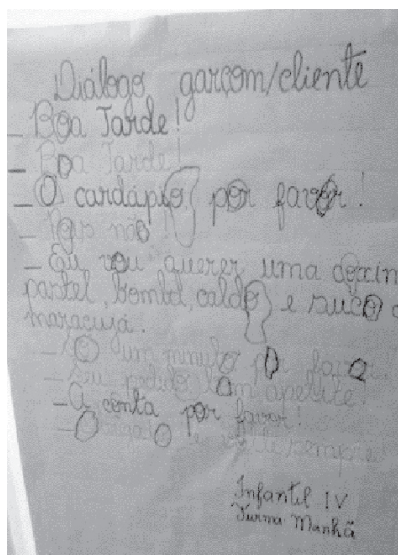 Diálogo garçom/cliente
_ Boa Tarde!
_ Boa Tarde!
_ O cardápio por favor!
_ Pois não!
_ Eu vou querer uma
pastel, bombom, caldo e suco
maracujá.
_ Só um minuto por favor!
_ Seu pedido bom apetite!
_ A conta por favor!
_ e volte sempre!
Infantil IV
Turma Manhã